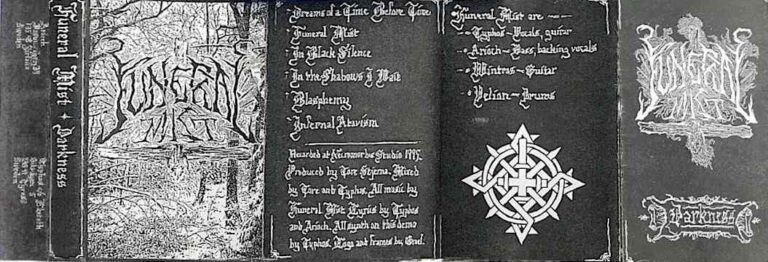 Funeral Mist + Darkness
FUNERAL
MIST
Dreams of a Time Before Time
Funeral Mist
In Black Silence
In the Shadows I Wait
Blasphemy
Infernal Atavism
Recorded at Necromorbus Studio 1995.
Produced by Tore Stjerna. Mixed
by Tore and Typhos. All music by
Funeral Mist. Lyrics by Typhos
and Arioch. All synth on this demo
by Typhos. Logo and frames by
Funeral Mist are
Typhos - Vocals, guitar
Arioch - Bass, backing vocals
Wintras - Guitar
Velian - Drums
FUNERAL
MIST
Darkness